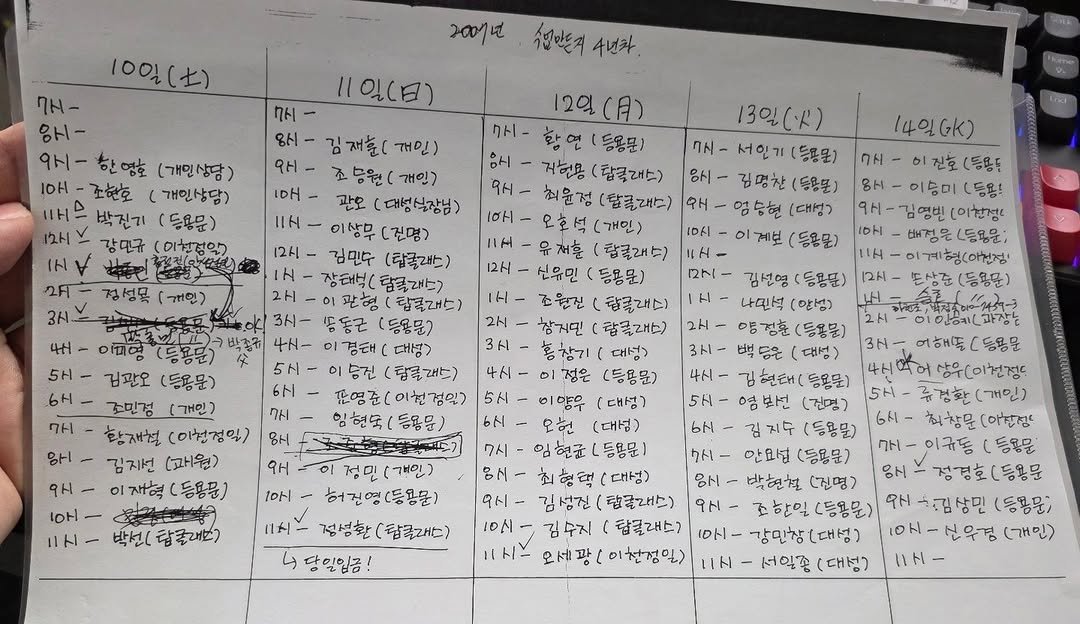 2007년 수업만든지 4년차.
10일(土)
7시 -
8시 -
9시 - 한영호 (개인상담)
10시 - 조현호 (개인상담)
11시 - 박진기 (등용문)
12시 - 강민규 (이천정일)
1시
2시 - 정성목 (개인)
3시 -
→ 박종규 父
4시 - 이미영 (등용문)
5시 - 김관오 (등용문)
6시 - 조민정 (개인)
7시 - 황재철 (이천정일)
8시 - 김지선 (과외원)
9시 - 이재혁 (등용문)
10시 -
11시 - 박선 (탑클래스)
11일(日)
7시 -
8시 - 김재훈 (개인)
9시 - 조승원 (개인)
10시 - 관오 (대성실장님)
11시 - 이상무 (진명)
12시 - 김민수 (탑클래스)
1시 - 장태식 (탑클래스)
2시 - 이광형 (탑클래스)
3시 - 송동근 (등용문)
4시 - 이경태 (대성)
5시 - 이승진 (탑클래스)
6시 - 표영준 (이천정일)
7시 - 임현숙 (등용문)
8시 -
9시 - 이정민 (개인)
10시 - 허진영 (등용문)
11시 - 정성환 (탑클래스)
↳ 당일입금!
12일(月)
7시 - 황연 (등용문)
8시 - 지현용 (탑클래스)
9시 - 최윤정 (탑클래스)
10시 - 오호석 (개인)
11시 - 유재훈 (탑클래스)
12시 - 신유민 (등용문)
1시 - 조원진 (탑클래스)
2시 - 장지민 (탑클래스)
3시 - 홍창기 (대성)
4시 - 이정은 (등용문)
5시 - 이양우 (대성)
6시 - 오헌 (대성)
7시 - 임현균 (등용문)
8시 - 최형택 (대성)
9시 - 김성진 (탑클래스)
10시 - 김수지 (탑클래스)
11시 - 오세광 (이천정일)
13일(火)
7시 - 서인기 (등용문)
8시 - 김명찬 (등용문)
9시 - 엄승현 (대성)
10시 - 이계보 (등용문)
11시 -
12시 - 김선영 (등용문)
1시 - 나민석 (안성)
2시 - 양정훈 (등용문)
3시 - 백승은 (대성)
4시 - 김현태 (등용문)
5시 - 염보선 (진명)
6시 - 김지수 (등용문)
7시 - 안요섭 (등용문)
8시 - 박현철 (진명)
9시 - 조한일 (등용문)
10시 - 강민창 (대성)
11시 - 서일종 (대성)
14일(水)
7시 - 이진호 (등용
8시 - 이승미 (등용
9시 - 김영빈 (이천정
10시 - 배정은 (등용문
11시 - 이계형 (이천정
12시 - 손상준 (등용문
1시 -
2시 -
3시 - 어해솔 (등용문
4시 - 어상우 (이천정
5시 - 류경환 (개인)
6시 - 최창문 (이천정
7시 - 이규등 (등용문
8시 - 정경호 (등용문
9시 - 김상민 (등용문
10시 - 신우경 (개인)
11시 -